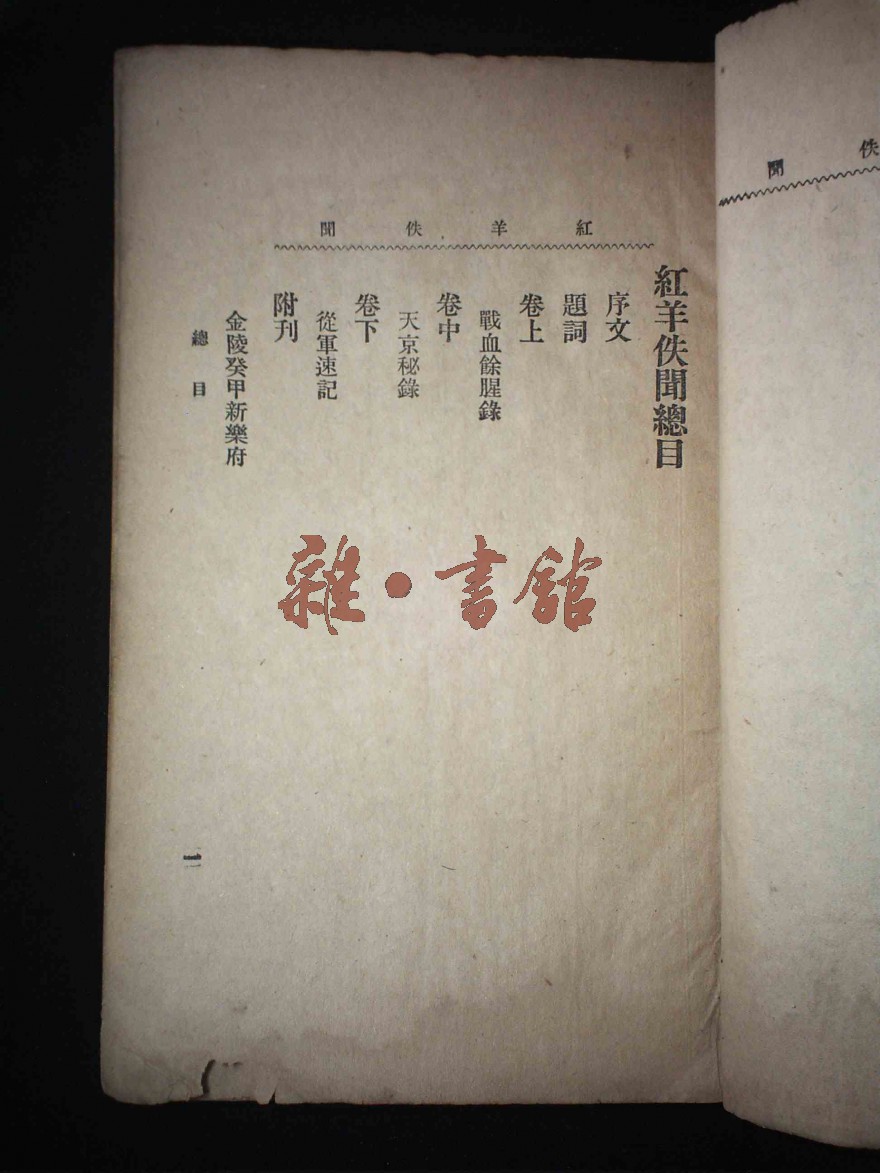 紅羊佚聞
紅羊佚聞總目
序文
題詞
卷上
戰血餘腥錄
卷中
天京秘錄
卷下
從軍速記
附刊
金陵癸甲新樂府
總目
佚聞
雜·書館